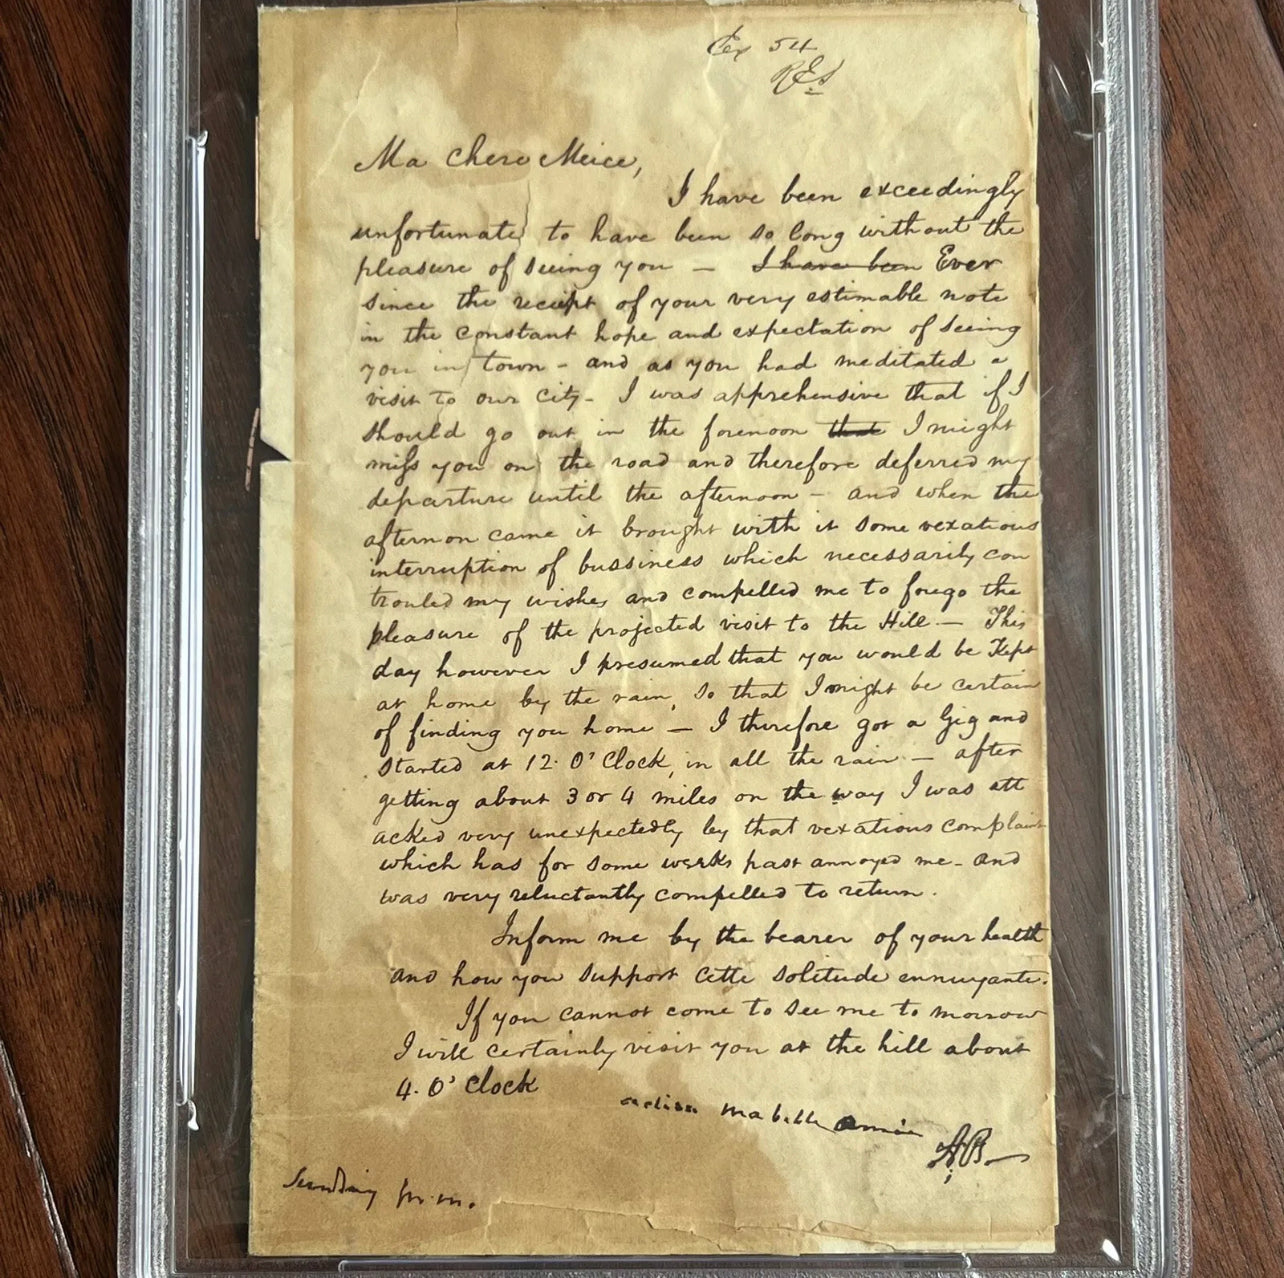 Ex 54
RES
Ma chere Meice,
I have been exceedingly
unfortunate to have been so long without the
pleasure of seeing you — I have been Ever
since the receipt of your very estimable note
in the constant hope and expectation of seeing
you in town - and as you had meditated a
visit to our city - I was apprehensive that if I
should go out in the forenoon that I might
miss you on the road and therefore deferred my
departure until the afternoon - and when the
afternoon came it brought with it some vexatious
interruption of bussiness which necessarily con
trouled my wishes and compelled me to forego the
pleasure of the projected visit to the Hill — This
day however I presumed that you would be Kept
at home by the rain, so that I might be certain
of finding you home — I therefore got a Gig and
started at 12. O' Clock, in all the rain — after
getting about 3 or 4 miles on the way I was att
acked very unexpectedly by that vexatious complaint
which has for some weeks past annoyed me - and
was very reluctantly compelled to return.
Inform me by the bearer of your health
and how you support cette solitude ennuyante.
If you cannot come to see me to morrow
I will certainly visit you at the hill about
4. O' Clock
adieu ma belle amie
AB
Sunday